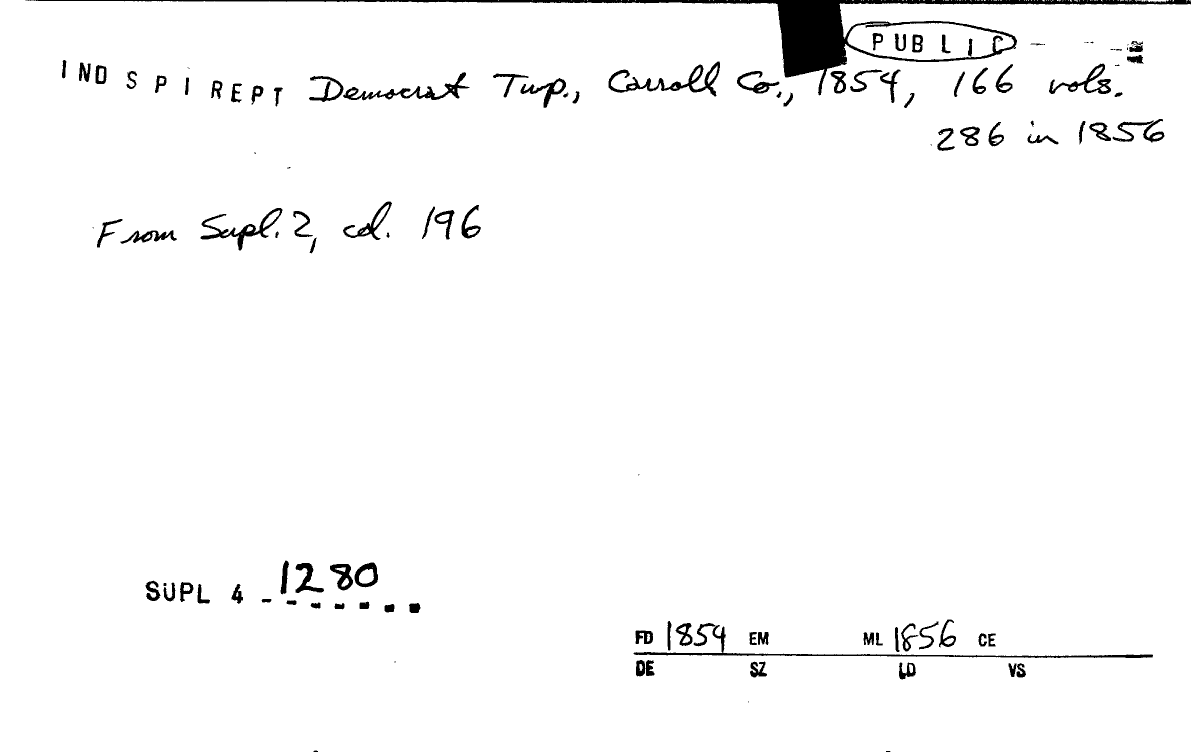 PUBLIC
IND SPI REPT Democrat Twp., Carroll Co., 1854, 166 vols.
286 in 1856
From Supl. 2, col. 196
SUPL 4 - 1280
FD 1854 EM ML 1856 CE
DE SZ LD VS